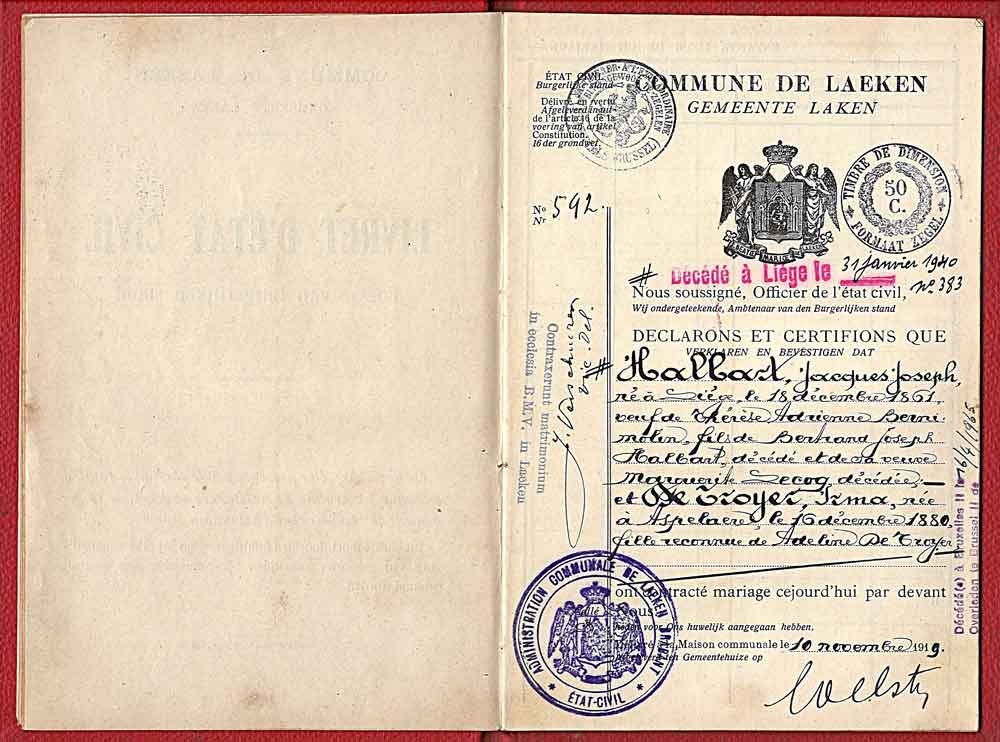 ÉTAT CIVIL
Burgerlijke stand
Délivré en vertu
Afgeleverd in
de l'article 16 de la
voering van artikel
Constitution.
16 der grondwet.
COMMUNE DE LAEKEN
GEMEENTE LAKEN
TIMBRE DE DIMENSION
50
C.
FORMAAT ZEGEL
No 592.
Nr
# Décédé à Liége le 31 janvier 1940
n° 383
Nous soussigné, Officier de l'état civil,
Wij ondergeteekende, Ambtenaar van den Burgerlijken stand
DECLARONS ET CERTIFIONS QUE
VERKLAREN EN BEVESTIGEN DAT
# Halbart, Jacques Joseph,
né à Liége, le 18 décembre 1861,
veuf de Thérèse Adrienne Berni-
molin, fils de Bertrand Joseph
Halbart, décédé et de sa veuve
Marguerite Lecoq décédée;—
et De Troyer, Irma, née
à Aspelaere, le 16 décembre 1880,
fille reconnue de Adeline De Troyer
ont contracté mariage cejourd'hui par devant
Nous.
heden voor Ons huwelijk aangegaan hebben.
à la Maison communale le 10 novembre 1919.
Gemeentehuize op
Contraxerunt matrimonium
in ecclesia B.M.V. in Laeken
J. Verschueren
Vic. Del.
Décédé(e) à Bruxelles II le 16/4/1965
Overleden te Brussel II de
ADMINISTRATION COMMUNALE DE LAEKEN BRABANT
ÉTAT-CIVIL
LIVRET D'ÉTAT CIVIL